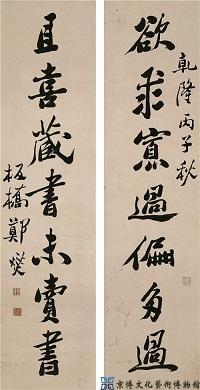 乾隆丙子秋
欲求寡過偏多過
且喜藏書未賣書
板橋鄭燮
京博文化藝術博物館